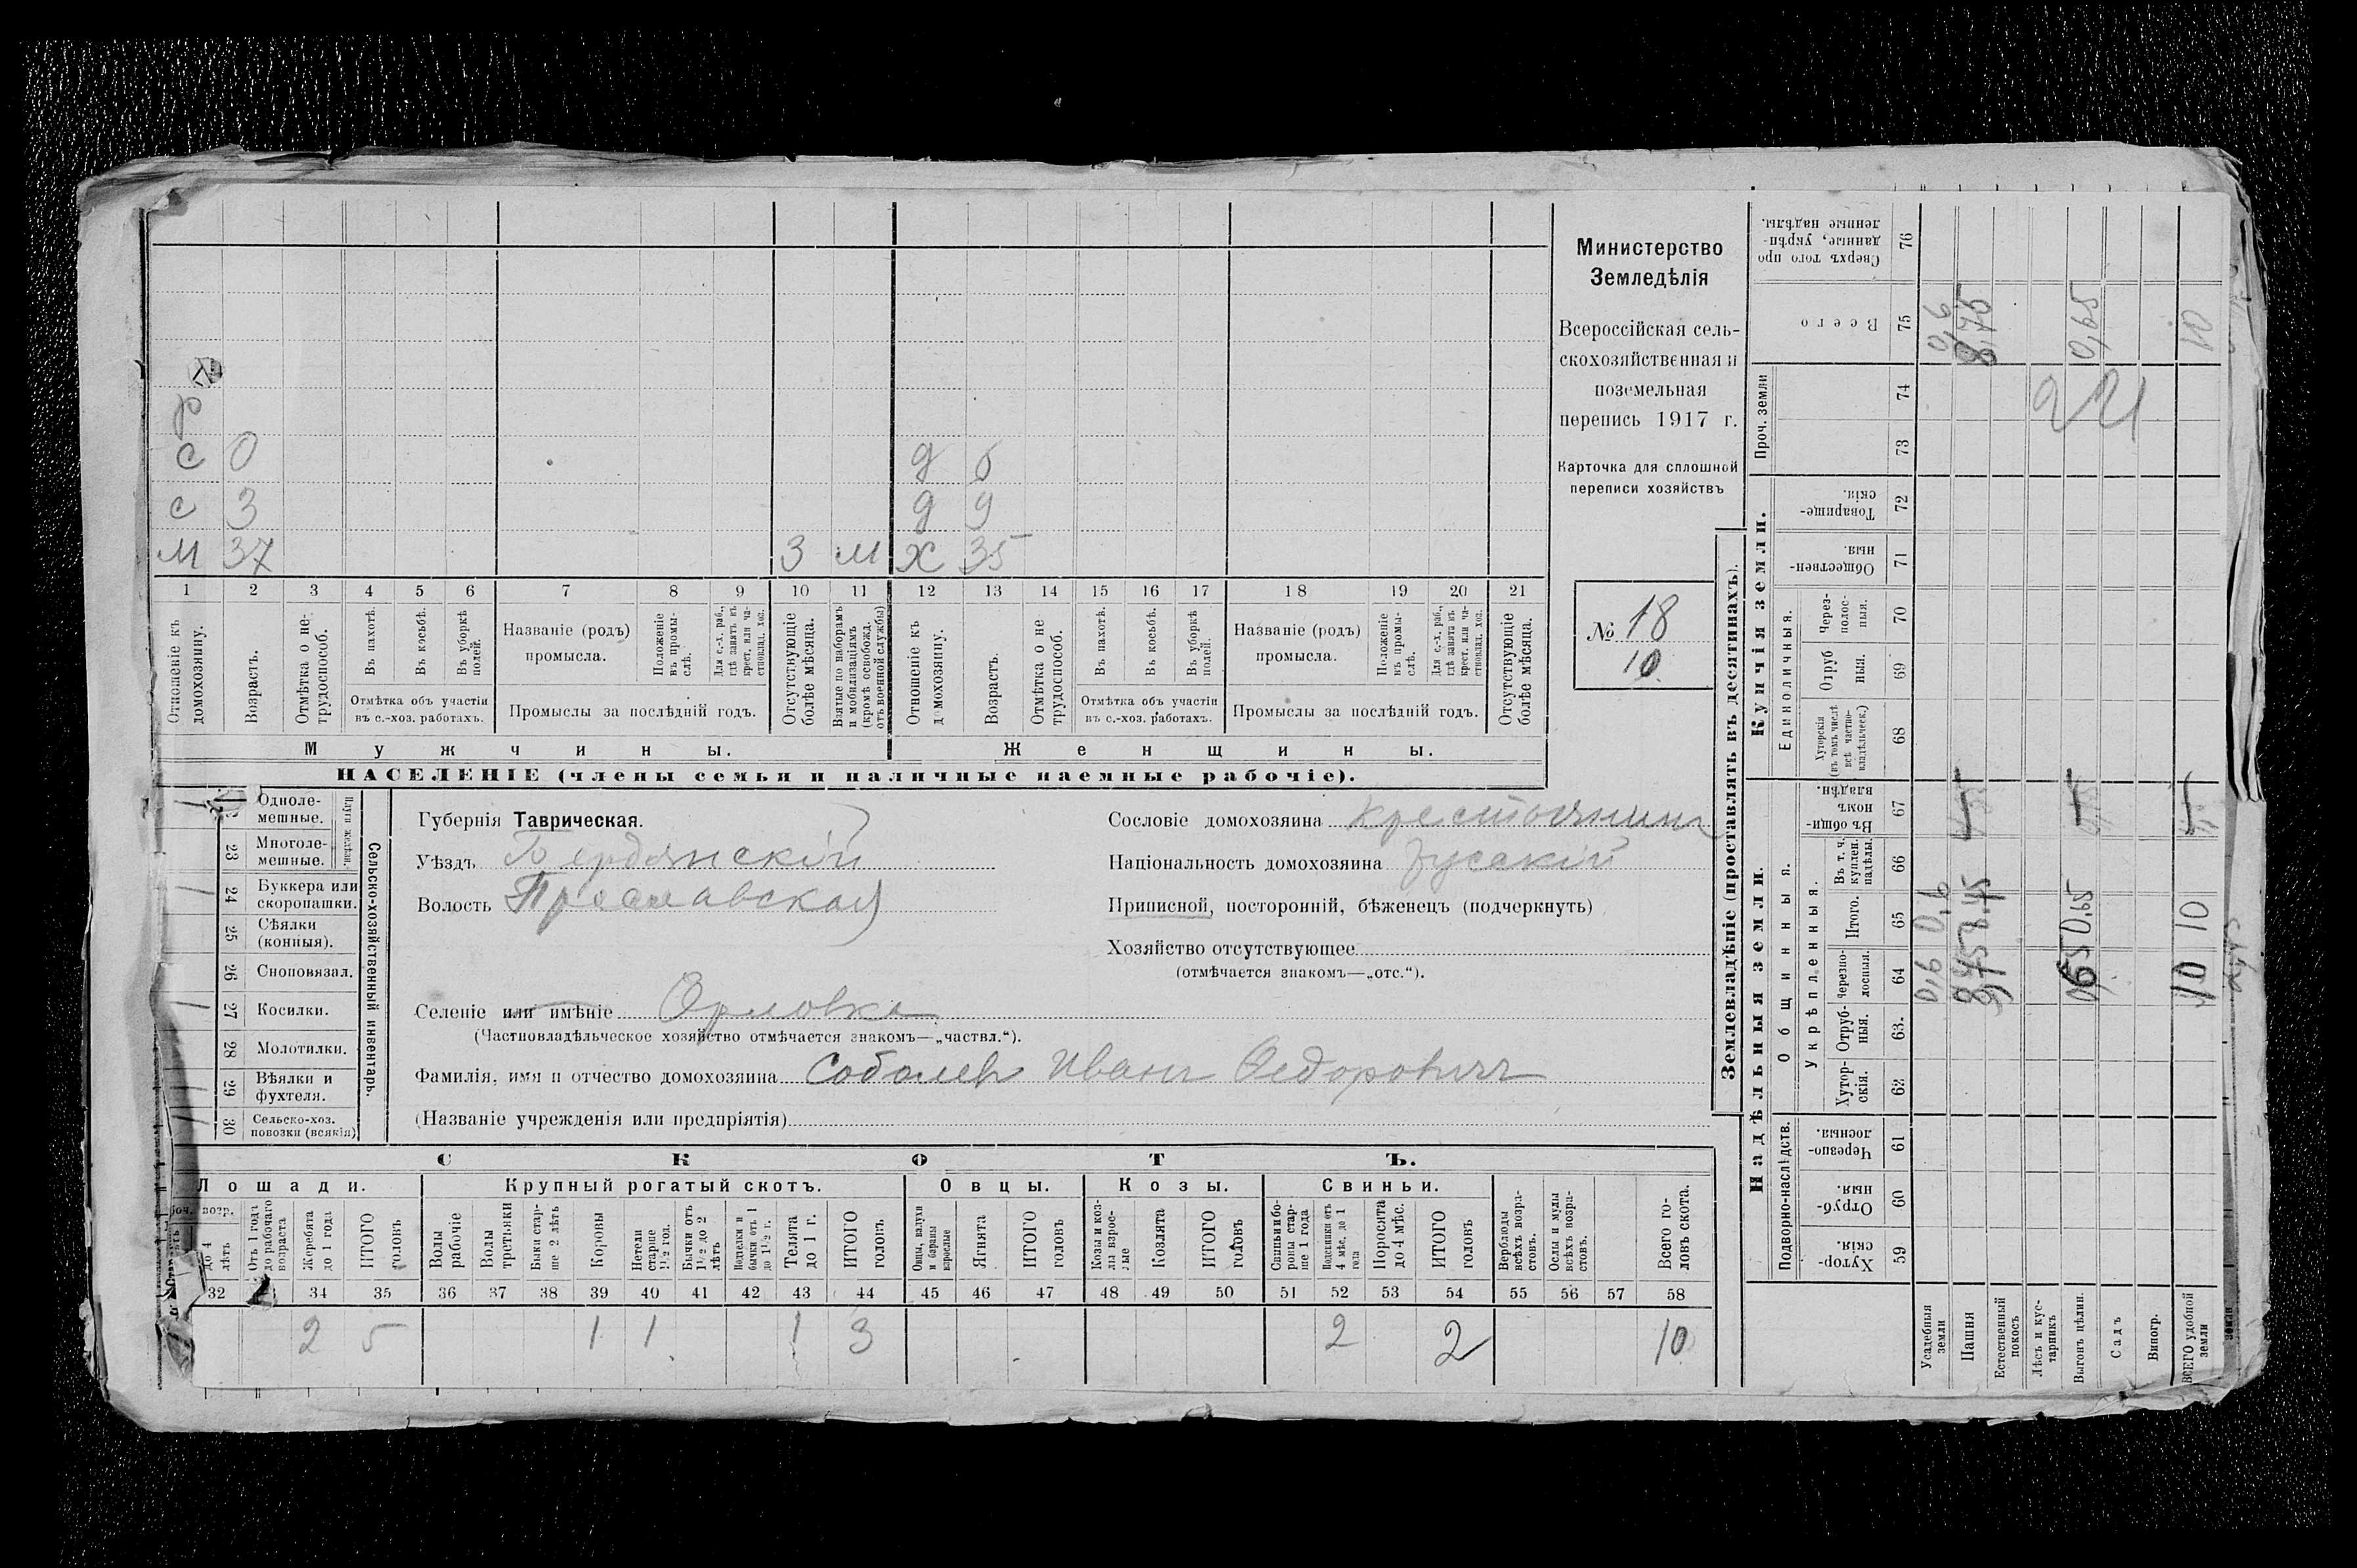 Министерство
Земледѣлія
Всероссійская сель-
скохозяйственная и
поземельная
перепись 1917 г.
Карточка для сплошной
переписи хозяйствъ
№ 18
10
р
с 0
д 6
с 3
д 9
м 37
3 м
х 35
1 2 3 4 5 6 7 8 9 10 11 12 13 14 15 16 17 18 19 20 21
Отношеніе къ домохозяину.
Возрастъ.
Отмѣтка о не-трудоспособ.
Въ пахотѣ.
Въ косьбѣ.
Въ уборкѣ полей.
Отмѣтка объ участіи
въ с.-хоз. работахъ.
Названіе (родъ)
промысла.
Положеніе въ промы-слѣ.
Для с.-х. раб., гдѣ занятъ въ крест. или ча-стновлад. хоз.
Промыслы за послѣдній годъ.
Отсутствующіе болѣе мѣсяца.
Взятые по наборамъ и мобилизаціямъ (кромѣ освобожд. отъ военной службы)
Отношеніе къ домохозяину.
Возрастъ.
Отмѣтка о не трудоспособ.
Въ пахотѣ.
Въ косьбѣ.
Въ уборкѣ полей.
Отмѣтка объ участіи
въ с.-хоз. работахъ.
Названіе (родъ)
промысла.
Положеніе въ промы-слѣ.
Для с.-х. раб., гдѣ занята въ крест. или ча-стновлад. хоз.
Промыслы за послѣдній годъ.
Отсутствующіе болѣе мѣсяца.
Мужчины.
Женщины.
НАСЕЛЕНІЕ (члены семьи и наличные наемные рабочіе).
Одноле-
мешные.
23 Многоле-
мешные.
24 Буккера или
скоропашки.
25 Сѣялки
(конныя).
26 Сноповязал.
27 Косилки.
28 Молотилки.
29 Вѣялки и
фухтеля.
30 Сельско-хоз.
повозки (всякія)
Сельско-хозяйственный инвентарь.
Губернія Таврическая.
Уѣздъ Бердянскій
Волость Преславская
Селеніе или имѣніе Орловка
(Частновладѣльческое хозяйство отмѣчается знакомъ—„частвл.“).
Фамилія, имя и отчество домохозяина Соболев Иванъ Федоровичъ
(Названіе учрежденія или предпріятія)
Сословіе домохозяина крестьянинъ
Національность домохозяина русскій
Приписной, посторонній, бѣженецъ (подчеркнуть)
Хозяйство отсутствующее
(отмѣчается знакомъ—„отс.“).
СКОТЪ.
Лошади.
Крупный рогатый скотъ.
Овцы.
Козы.
Свиньи.
возр.
до 4 лѣтъ
Отъ 1 года до рабочаго возраста
Жеребята до 1 года
ИТОГО головъ
Волы рабочіе
Волы третьяки
Быки стар-ше 2 лѣтъ
Коровы
Нетели старше 1½ год.
Бычки отъ 1½ до 2 лѣтъ
Нетелки и бычки отъ 1 до 1½ г.
Телята до 1 г.
ИТОГО головъ
Овцы, валухи и бараны взрослые
Ягнята
ИТОГО головъ
Козы и коз-лы взрос-лые
Козлята
ИТОГО головъ
Свиньи и бо-ровы стар-ше 1 года
Подсвинки отъ 4 мѣс. до 1 года
Поросята до 4 мѣс.
ИТОГО головъ
Верблюды всѣхъ возра-стовъ.
Ослы и мулы всѣхъ возра-стовъ.
Всего го-ловъ скота.
32 34 35 36 37 38 39 40 41 42 43 44 45 46 47 48 49 50 51 52 53 54 55 56 57 58
2 5 1 1 1 3 2 2 10
Землевладѣніе (проставлять въ десятинахъ).
Надѣльныя земли.
Купчія земли.
Проч. земли
Подворно-наслѣдств.
Общинныя.
Укрѣпленныя.
Единоличныя.
Хутор-скія. 59
Отруб-ныя. 60
Черезпо-лосныя. 61
Хутор-скія. 62
Отруб-ныя. 63
Черезпо-лосныя. 64
Итого. 65
Въ т. ч. куплен. надѣлы. 66
Въ общи-номъ владѣн. 67
Хуторскія (въ томъ числѣ всѣ частно-владѣльческ.) 68
Отруб ныя. 69
Через-полос-ныя. 70
Обществен-ныя. 71
Товарище-скія. 72
73
74
Всего 75
Сверхъ того про данные, укрѣп-ленные надѣлы. 76
Усадебныя земли 0,6 0,6 0,6
Пашня 8,75
Естественный покосъ
Лѣсъ и кус-тарникъ
Выгонъ цѣлин. 0,65 0,65
Садъ
Виногр.
ВСЕГО удобной земли 10 10 10